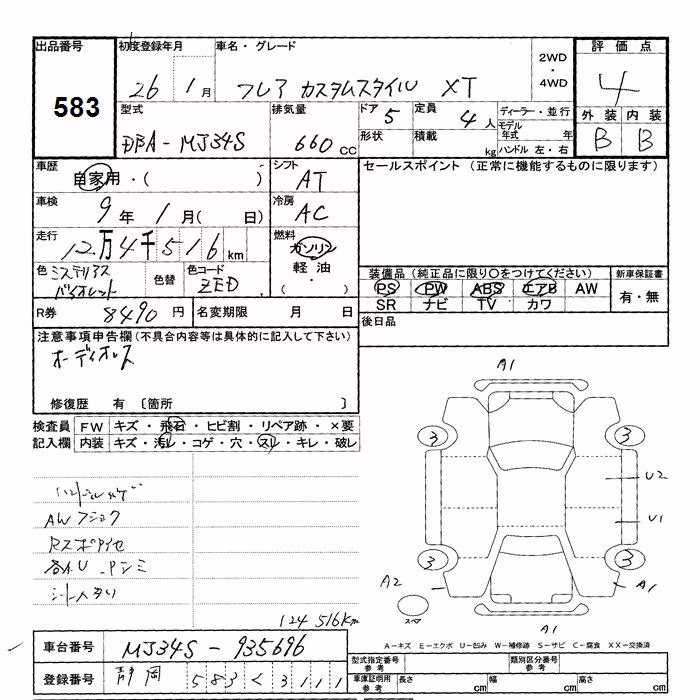 出品番号
583
初度登録年月
26年 1月
車名・グレード
フレア カスタムスタイル XT
2WD
・
4WD
評価点
4
外装 内装
B B
型式
DBA-MJ34S
排気量
660 cc
ドア
5
定員
4人
形状
積載
kg
ディーラー・並行
モデル年式 年
ハンドル 左・右
車歴
自家用・( )
シフト
AT
車検
9年 1月( 日)
冷房
AC
走行
12万4千516km
燃料
ガソリン
軽油・
( )
色
ミステリアス
バイオレット
色替
色コード
ZED
R券
8490円
名変期限 月 日
セールスポイント (正常に機能するものに限ります)
装備品(純正品に限り○をつけてください)
PS PW ABS エアB AW
SR ナビ TV カワ
新車保証書
有・無
後日品
注意事項申告欄(不具合内容等は具体的に記入して下さい)
オーディオレス
修復歴 有 〔箇所 〕
検査員
記入欄
FW キズ・飛石・ヒビ割・リペア跡・×要
内装 キズ・汚レ・コゲ・穴・スレ・キレ・破レ
AWフショク
各AU、Pシミ
124516km
A1
3 3
U2
U1
3 3
A2
A1
スペア
A1
A-キズ E-エクボ U-凹み W-補修跡 S-サビ C-腐食 XX-交換済
車台番号
MJ34S-935696
登録番号
静岡 583 く 3111
型式指定番号
参考
類別区分番号
参考
車庫証明用
参考
長さ cm
幅 cm
高さ cm